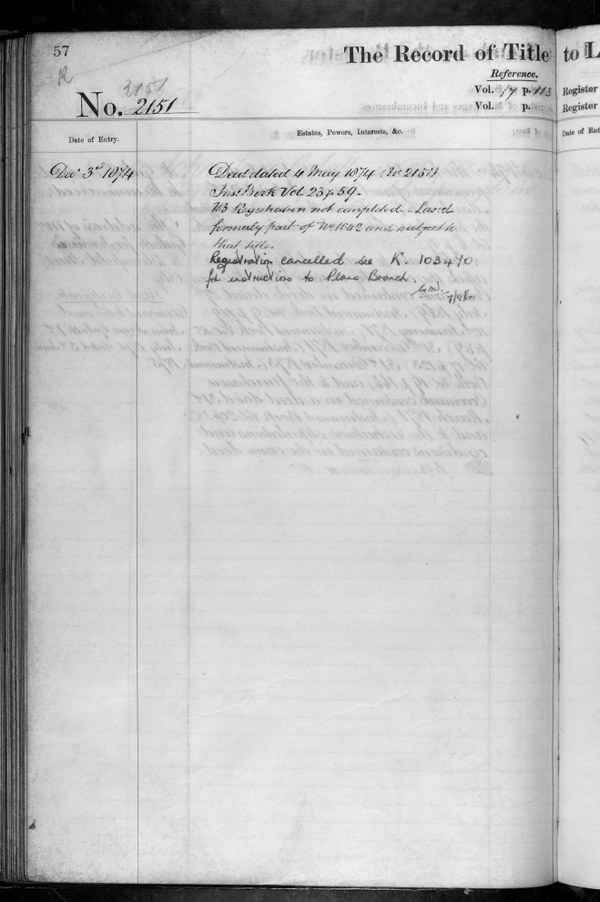 57
The Record of Title to L
R
2151
Reference.
No. 2151
Vol. 17 p. 113
Vol. p.
Register
Register
Date of Entry.
Estates, Powers, Interests, &c.
Date of Ent
Decr 3rd 1874
Deed dated 4 May 1874 (No 2151)
Inst Book Vol 23 p 59.
NB Registration not completed - Land
formerly part of No 1642 and subject to
that title.
Registration cancelled see K. 10340
for instructions to Plans Branch.